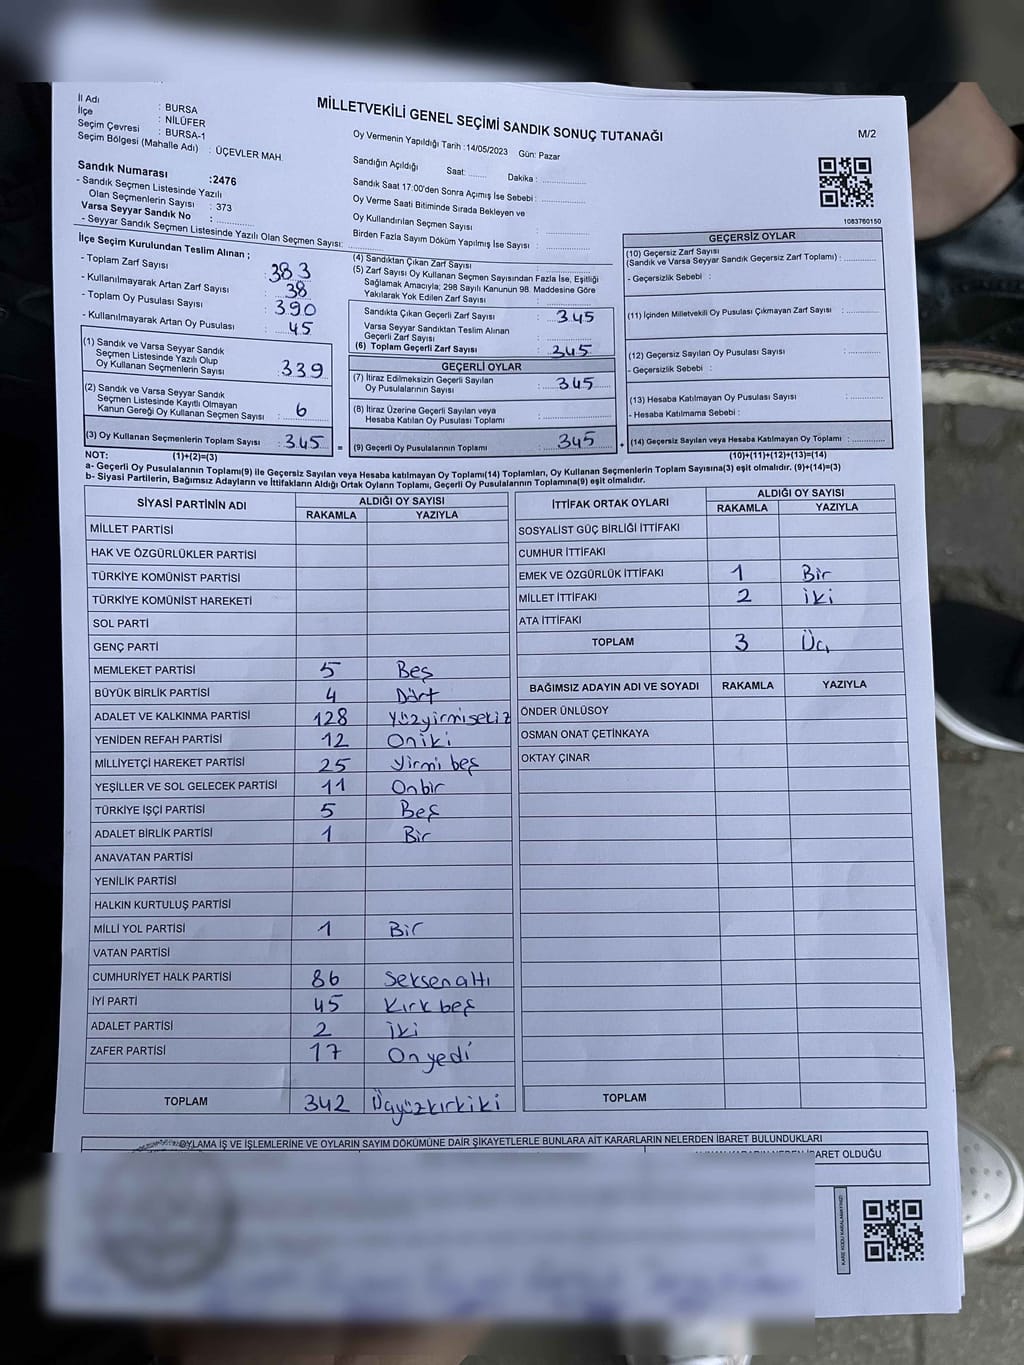 MİLLETVEKİLİ GENEL SEÇİMİ SANDIK SONUÇ TUTANAĞI
M/2
İl Adı : BURSA
İlçe : NİLÜFER
Seçim Çevresi : BURSA-1
Seçim Bölgesi (Mahalle Adı) : ÜÇEVLER MAH.
Sandık Numarası :2476
- Sandık Seçmen Listesinde Yazılı
Olan Seçmenlerin Sayısı : 373
Varsa Seyyar Sandık No :
- Seyyar Sandık Seçmen Listesinde Yazılı Olan Seçmen Sayısı:
Oy Vermenin Yapıldığı Tarih :14/05/2023 Gün: Pazar
Sandığın Açıldığı Saat: Dakika :
Sandık Saat 17.00'den Sonra Açımış İse Sebebi :
Oy Verme Saati Bitiminde Sırada Bekleyen ve
Oy Kullandırılan Seçmen Sayısı :
Birden Fazla Sayım Döküm Yapılmış İse Sayısı :
1083760150
İlçe Seçim Kurulundan Teslim Alınan ;
- Toplam Zarf Sayısı : 383
- Kullanılmayarak Artan Zarf Sayısı : 38
- Toplam Oy Pusulası Sayısı : 390
- Kullanılmayarak Artan Oy Pusulası : 45
(1) Sandık ve Varsa Seyyar Sandık
Seçmen Listesinde Yazılı Olup
Oy Kullanan Seçmenlerin Sayısı : 339
(2) Sandık ve Varsa Seyyar Sandık
Seçmen Listesinde Kayıtlı Olmayan
Kanun Gereği Oy Kullanan Seçmen Sayısı : 6
(3) Oy Kullanan Seçmenlerin Toplam Sayısı : 345 =
(4) Sandıktan Çıkan Zarf Sayısı :
(5) Zarf Sayısı Oy Kullanan Seçmen Sayısından Fazla İse, Eşitliği
Sağlamak Amacıyla; 298 Sayılı Kanunun 98. Maddesine Göre
Yakılarak Yok Edilen Zarf Sayısı :
Sandıkta Çıkan Geçerli Zarf Sayısı : 345
Varsa Seyyar Sandıktan Teslim Alınan
Geçerli Zarf Sayısı :
(6) Toplam Geçerli Zarf Sayısı : 345
GEÇERLİ OYLAR
(7) İtiraz Edilmeksizin Geçerli Sayılan
Oy Pusulalarının Sayısı : 345
(8) İtiraz Üzerine Geçerli Sayılan veya
Hesaba Katılan Oy Pusulası Toplamı :
(9) Geçerli Oy Pusulalarının Toplamı : 345 +
GEÇERSİZ OYLAR
(10) Geçersiz Zarf Sayısı
(Sandık ve Varsa Seyyar Sandık Geçersiz Zarf Toplamı) :
- Geçersizlik Sebebi :
(11) İçinden Milletvekili Oy Pusulası Çıkmayan Zarf Sayısı :
(12) Geçersiz Sayılan Oy Pusulası Sayısı :
- Geçersizlik Sebebi :
(13) Hesaba Katılmayan Oy Pusulası Sayısı :
- Hesaba Katılmama Sebebi :
(14) Geçersiz Sayılan veya Hesaba Katılmayan Oy Toplamı :
NOT: (1)+(2)=(3) (10)+(11)+(12)+(13)=(14)
a- Geçerli Oy Pusulalarının Toplamı(9) ile Geçersiz Sayılan veya Hesaba katılmayan Oy Toplamı(14) Toplamları, Oy Kullanan Seçmenlerin Toplam Sayısına(3) eşit olmalıdır. (9)+(14)=(3)
b- Siyasi Partilerin, Bağımsız Adayların ve İttifakların Aldığı Ortak Oyların Toplamı, Geçerli Oy Pusulalarının Toplamına(9) eşit olmalıdır.
SİYASİ PARTİNİN ADI ALDIĞI OY SAYISI
RAKAMLA YAZIYLA
MİLLET PARTİSİ
HAK VE ÖZGÜRLÜKLER PARTİSİ
TÜRKİYE KOMÜNİST PARTİSİ
TÜRKİYE KOMÜNİST HAREKETİ
SOL PARTİ
GENÇ PARTİ
MEMLEKET PARTİSİ 5 Beş
BÜYÜK BİRLİK PARTİSİ 4 Dört
ADALET VE KALKINMA PARTİSİ 128 Yüzyirmisekiz
YENİDEN REFAH PARTİSİ 12 Oniki
MİLLİYETÇİ HAREKET PARTİSİ 25 Yirmi beş
YEŞİLLER VE SOL GELECEK PARTİSİ 11 Onbir
TÜRKİYE İŞÇİ PARTİSİ 5 Beş
ADALET BİRLİK PARTİSİ 1 Bir
ANAVATAN PARTİSİ
YENİLİK PARTİSİ
HALKIN KURTULUŞ PARTİSİ
MİLLİ YOL PARTİSİ 1 Bir
VATAN PARTİSİ
CUMHURİYET HALK PARTİSİ 86 Seksenaltı
İYİ PARTİ 45 Kırk beş
ADALET PARTİSİ 2 İki
ZAFER PARTİSİ 17 Onyedi
TOPLAM 342 Üçyüzkırkiki
İTTİFAK ORTAK OYLARI ALDIĞI OY SAYISI
RAKAMLA YAZIYLA
SOSYALİST GÜÇ BİRLİĞİ İTTİFAKI
CUMHUR İTTİFAKI
EMEK VE ÖZGÜRLÜK İTTİFAKI 1 Bir
MİLLET İTTİFAKI 2 İki
ATA İTTİFAKI
TOPLAM 3 Üç
BAĞIMSIZ ADAYIN ADI VE SOYADI RAKAMLA YAZIYLA
ÖNDER ÜNLÜSOY
OSMAN ONAT ÇETİNKAYA
OKTAY ÇINAR
TOPLAM
OYLAMA İŞ VE İŞLEMLERİNE VE OYLARIN SAYIM DÖKÜMÜNE DAİR ŞİKAYETLERLE BUNLARA AİT KARARLARIN NELERDEN İBARET BULUNDUKLARI
İBARET OLDUĞU
KARE KODU KARALAMAYINIZ!